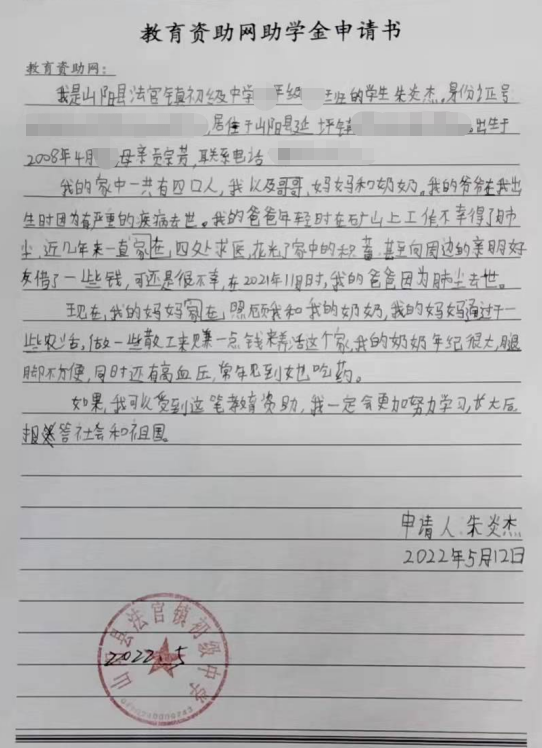 教育资助网助学金申请书
教育资助网:
我是山阳县法官镇初级中学 年级 班的学生朱炎杰,身份证号
,居住于山阳县延坪镇 。出生于
2008年4月 母亲 宗芳,联系电话
我的家中一共有四口人,我以及哥哥,妈妈和奶奶。我的爷爷在我出
生时因为有严重的疾病去世。我的爸爸年轻时在矿山上工作不幸得了肺
尘,近几年来一直家在,四处求医,花光了家中的积蓄,甚至向周边的亲朋好
友借了一些钱,可还是很不幸,在2021年11月时,我的爸爸因为肺尘去世。
现在,我的妈妈家在,照顾我和我的奶奶,我的妈妈通过干一
些农活,做一些散工来赚一点钱来养活这个家,我的奶奶年纪很大,腿
脚不方便,同时还有高血压,常年见到她吃药。
如果,我可以受到这笔教育资助,我一定会更加努力学习,长大后
报答社会和祖国。
申请人:朱炎杰
2022年5月12日
山阳县法官镇初级中学
2022.5